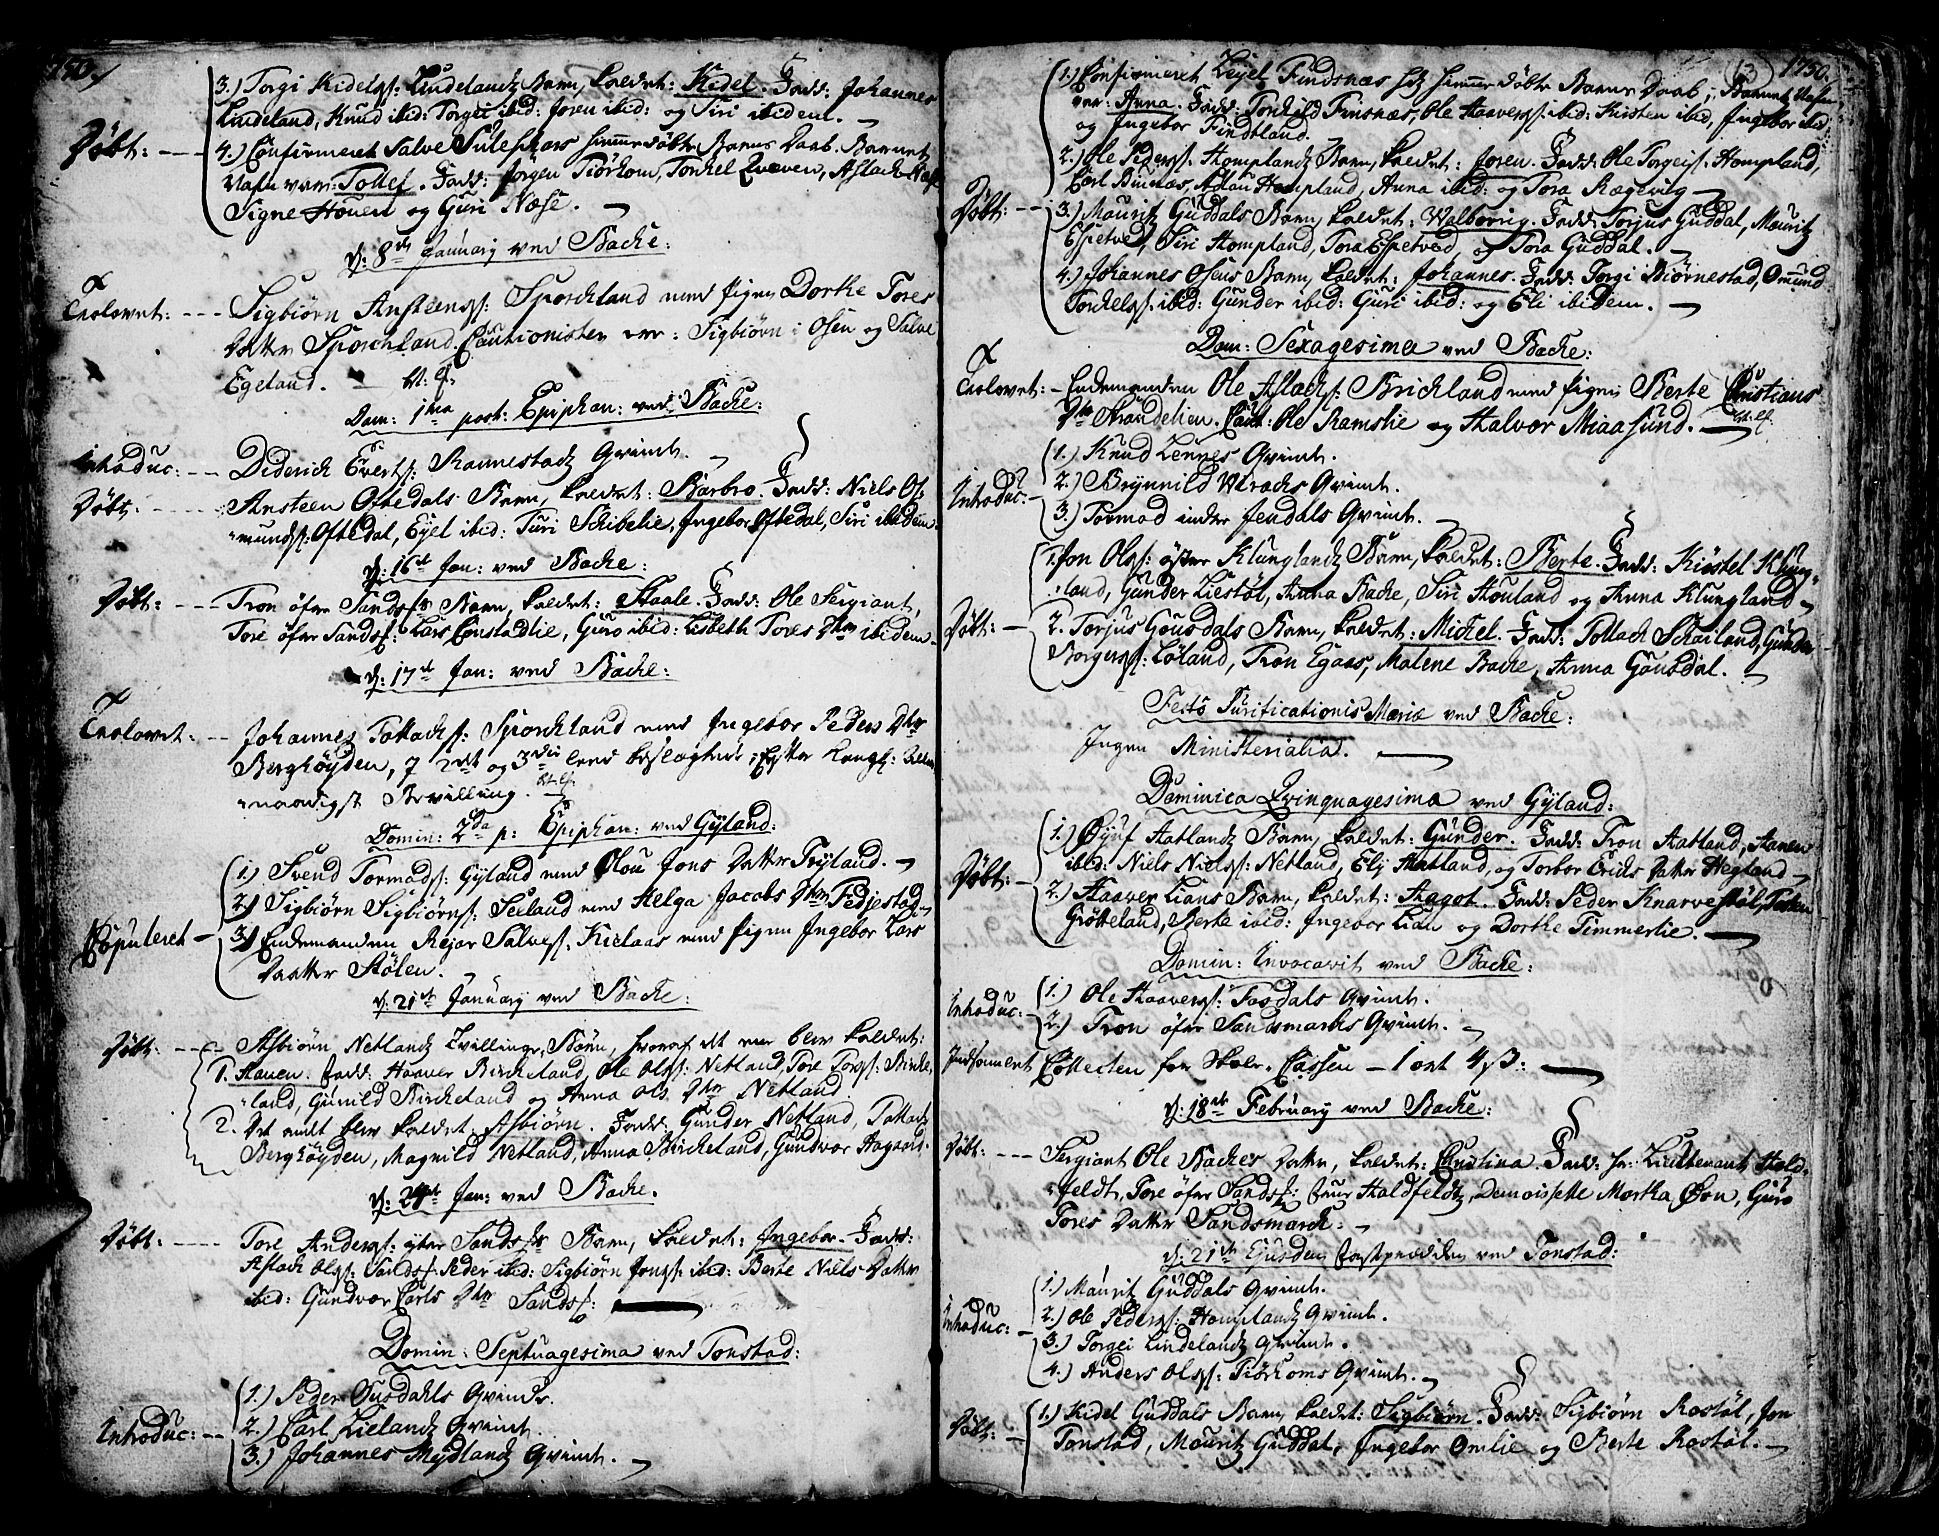 1750.
3.) Torgi Kidelss: Lindelandz Barn, kaldet: Kidel. Fadd: Johannes
Lindeland, Knud ibid: Torgei ibid: Joren ibid: og Siri ibidem.
Döbt:
4.) Confirmeret Salve Suleskars hiemmedöbte Barns Daab. Barnets
Nafn var: Tollef. Fadd: Jörgen Tiörhom, Torkel Qvæven, Aslach Næse
Signe Houen og Guri Næse.
d: 8de January ved Backe:
Trolovet:
Sigbiörn Ansteenss: Sporchland med Pigen Dorthe Tores
Datter Sporchland. Cautionister ere: Sigbiörn i Osen og Salve
Egeland.
Dom: 1ma post: Epiphan: ved Backe:
Introduc:
Diderich Evertss: Rannestadz Qvinde.
Döbt:
Ansteen Oftedals Barn, kaldet: Barbro. Fadd: Niels Os-
mundss: Oftedal, Eyel ibid: Turi Schibelie, Ingebor Oftedal, Siri ibidem.
d: 16de Jan: ved Backe:
Döbt:
Tron öfre Sandss: Barn, kaldet: Staale. Fadd: Ole Sergiant,
Tore öfre Sandss: Lars Constadlie, Guro ibid: Lisbeth Tores Dtter ibidem.
d: 17de Jan: ved Backe:
Trolovet:
Johannes Tollachss: Sporchland med Ingebor Peders Dtter
Berghöyden, i 2det og 3die leed beslægtede, efter Kongl: Aller-
naadigst Bevilling.
Domin: 2da p: Epiphan: ved Gyland:
Copuleret
1.) Svend Tormodss: Gyland med Olou Jons Datter Tryland.
2.) Sigbiörn Sigbiörnss: Seeland med Helga Jacobs Dtter Fedjestad.
3.) Enkemanden Rejar Salvess: Kielaas med Pigen Ingebor Lars
Datter Stölen.
d: 21de January ved Backe:
Döbt:
Asbiörn Netlandz Tvillinge-Börn, hvoraf det ene blev kaldet:
1. Hanen: Fadd: Haaver Birckeland, Ole Olss: Netland, Tore Torss: Bircke-
land, Gunild Birckeland og Anna Ols Dtter Netland
2. Det andet blev kaldet: Asbiörn. Fadd: Gunder Netland, Tollach
Berghöyden, Magnild Netland, Anna Birckeland, Gundvor
d: 24de Jan: ved Backe.
Döbt:
Tore Anderss: öfre Sandss: Barn, kaldet: Ingebor. Fadd:
Aslach Olss: Sandss: Peder ibid: Sigbiörn Jonss: ibid: Berte Niels Datter
ibid: Gundvor Carls Dtter Sandss:
Domin: Septuagesima ved Tonstad:
Introduc:
1.) Peder Ousdahls Qvinde.
2.) Carl Lielandz Qvinde.
3.) Johannes Mydlandz Qvinde.
(3) 1750.
1.) Confirmeret Eyel Findsnæs hiemmedöbte Barns Daab; Barnets Nafn
var: Anna. Fadd: Torkild Finsnæs, Ole Haaverss: ibid: Kirsten ibid, Ingebor ibid:
og Ingebor Findsland.
2.) Ole Pederss: Homplandz Barn, kaldet: Joren. Fadd: Ole Torgeiss: Hompland,
Carl Bunæs, Adlau Hompland, Anna ibid: og Tora Rægevig
Döbt:
3.) Mouritz Guddals Barn, kaldet: Walborrig. Fadd: Torjus Guddal, Mouritz
Espetved, Siri Hompland, Tora Espetved, og Tora Guddal.
4.) Johannes Osens Barn, kaldet: Johannes. Fadd: Torgi Biörnestad, Omund
Torkelss: ibid: Gunder ibid: Guri ibid: og Eli ibidem.
Dom: Sexagesima ved Backe:
Trolovet:
Enkemanden Ole Aslachss: Brichland med Pigen Berte Christians
Dtr Strandelien. Caut: Ole Ramslie og Halvor Miaasund.
Introduc:
1.) Knud Lennes Qvinde.
2.) Brynnild Ulrachs Qvinde.
3.) Tormod indre Jendals Qvinde.
Döbt:
1. Jon Olss: öfre Klunglandz Barn, kaldet: Berte. Fadd: Kiöstel Klung-
land, Gunder Liestöl, Anna Backe, Siri Houland og Anna Klungland
2. Torjus Gousdals Barn, kaldet: Michel. Fadd: Tollach Schailand, Gunder
Borgerss: Löland, Tron Egaas, Malene Backe, Anna Gousdal.
Festo Purificationis Mariæ ved Backe:
Ingen Ministerialia.
Dominica Qvinquagesima ved Gyland:
Döbt:
1.) Öyuf Hatlandz Barn, kaldet: Gunder. Fadd: Tron Hatland, Hanen
ibid: Niels Nielss: Netland, Eli Hatland, og Torbor Erichs Datter Hegland
2.) Haaver Lians Barn, kaldet: Aagot. Fadd: Peder Knarvestöl, Torkel
Grötteland, Berte ibid: Ingebor Lian og Dorthe Timmerlie.
Domin: Invocavit ved Backe:
Introduc:
1.) Ole Haaverss: Tosdals Qvinde.
2.) Tron öfre Sandsmarks Qvinde.
Indsamlet Collecten for Skole-Cassen - 1 ort 4 s:
d: 18de February ved Backe:
Döbt:
Sergiant Ole Backes Datter, kaldet: Christina. Fadd: Hr: Lieutenant Hald-
feldt, Tore öfre Sandss: Frue Haldfeldtz, Demoiselle Martha Öen, Guro
Tores Datter Sandsmarck:
d: 21de Ejusdem fastprædiken ved Tonstad:
Introduc:
1.) Mouritz Guddals Qvinde.
2.) Ole Pederss: Homplandz Qvinde.
3.) Torgei Lindelandz Qvinde.
4.) Anders Olss: Tiörhoms Qvinde.
Döbt:
1.) Kidel Guddals Barn, kaldet: Sigbiörn. Fadd: Sigbiörn Rostöl, Jon
Tonstad, Mouritz Guddal, Ingebor Omlie og Berte Rostöl.